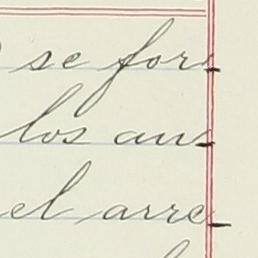 se for-
los an-
el arre-